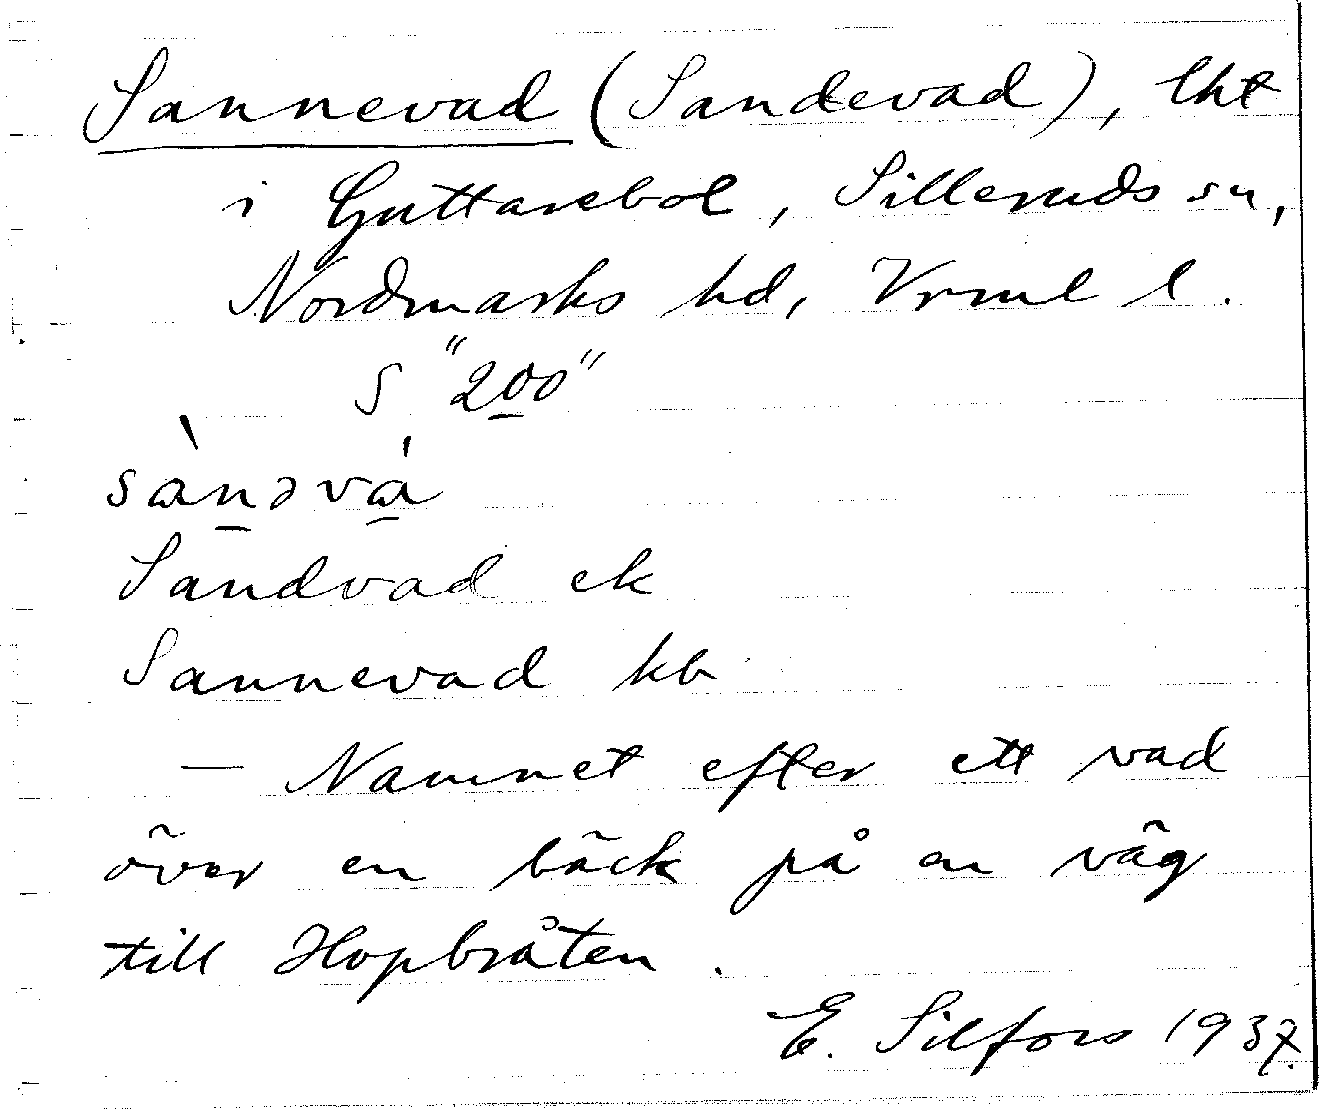 Sannevad (Sandevad), lht
i Guttarebol, Silleruds sn,
Nordmarks hd, Vrml l.
S "200"
sànəvá
Sandvad ek
Sannevad kb
— Namnet efter ett vad
över en bäck på en väg
till Hopbråten.
E. Silfors 1937.